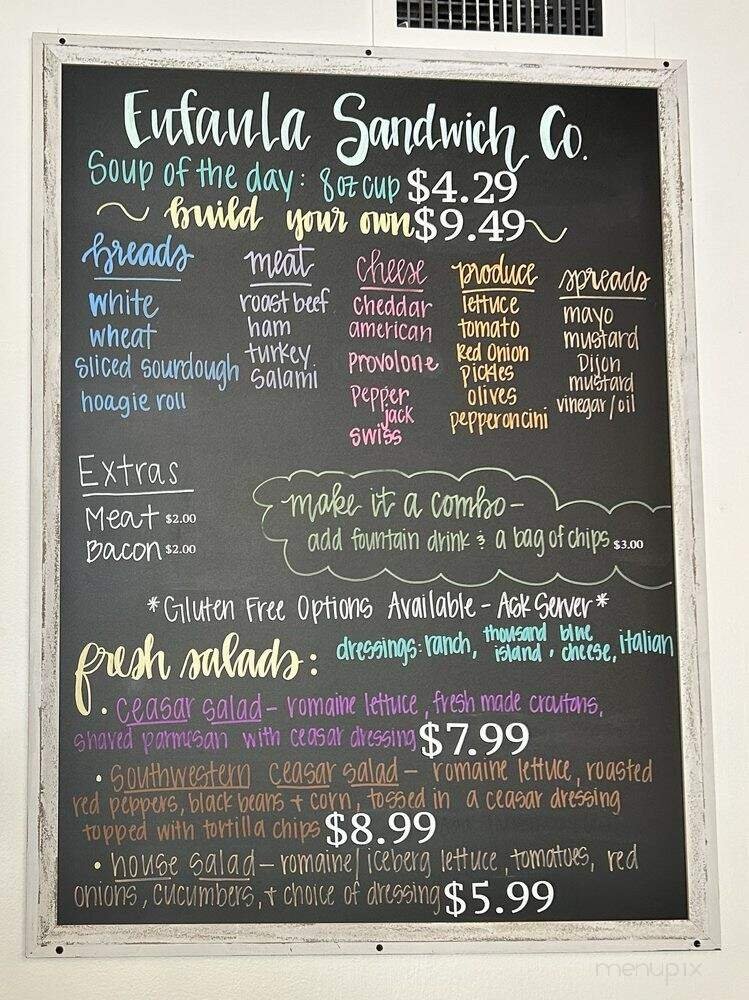 Eufaula Sandwich Co.
Soup of the day: 8oz cup $4.29
~ build your own $9.49 ~
breads
white
wheat
sliced sourdough
hoagie roll
meat
roast beef
ham
turkey
salami
cheese
cheddar
american
provolone
pepper
jack
swiss
produce
lettuce
tomato
Red Onion
pickles
olives
pepperoncini
spreads
mayo
mustard
Dijon
mustard
vinegar/oil
Extras
Meat $2.00
Bacon $2.00
make it a combo-
add fountain drink & a bag of chips $3.00
*Gluten Free Options Available - Ask Server*
fresh salads: dressings: ranch, thousand island, blue cheese, italian
• Ceasar salad - romaine lettuce, fresh made croutons,
shaved parmesan with ceasar dressing $7.99
• Southwestern ceasar salad - romaine lettuce, roasted
red peppers, black beans + corn, tossed in a ceasar dressing
topped with tortilla chips $8.99
• house salad - romaine/iceberg lettuce, tomatoes, red
onions, cucumbers, + choice of dressing $5.99
menupix